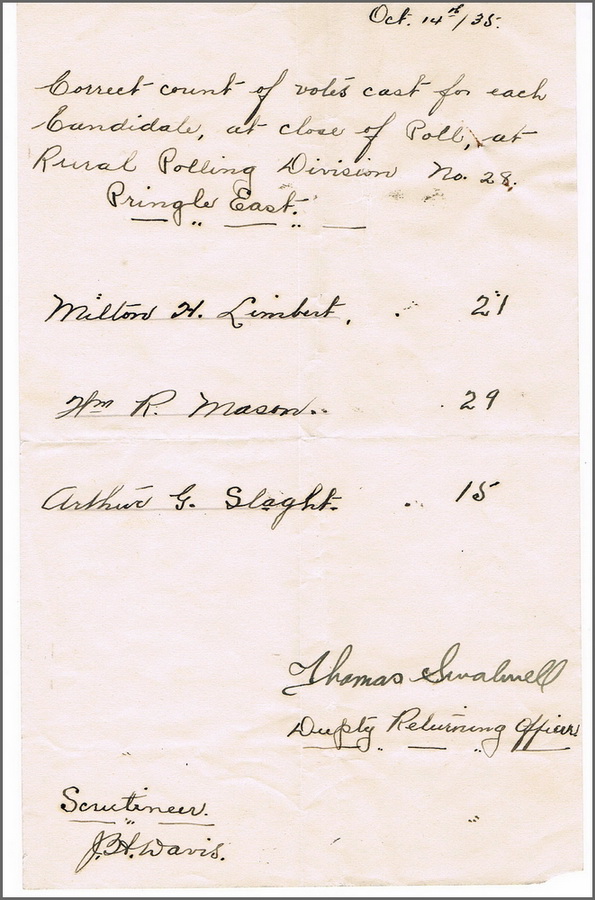 Oct. 14th/35.
Correct count of votes cast for each
Candidate, at close of Poll, at
Rural Polling Division No. 28.
Pringle East.
Milton H. Limbert. 21
Wm R. Mason. 29
Arthur G. Slaght. 15
Thomas Swalwell
Deupty Returning Officer
Scrutineer.
J.H. Davis.